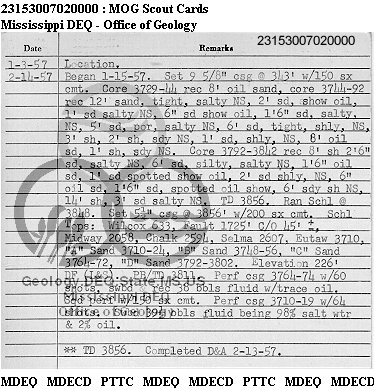 23153007020000 : MOG Scout Cards
Mississippi DEQ - Office of Geology
23153007020000
Date Remarks
1-3-57 Location.
2-14-57 Began 1-15-57. Set 9 5/8" csg @ 343' w/150 sx
cmt. Core 3729-44 rec 8' oil sand, core 3744-92
rec 12' sand, tight, salty NS, 2' sd, show oil,
1' sd salty NS, 6" sd show oil, 1'6" sd, salty,
NS, 5' sd, por, salty NS, 6' sd, tight, shly, NS,
3' sh, 2' sh, sdy NS, 1' sd, shly, NS, 8' oil
sd, 1' sh, sdy NS. Core 3792-3842 rec 8' sh 2'6"
sd, salty NS, 6' sd, silty, salty NS, 1'6" oil
sd, 1' sd spotted show oil, 2' sd shly, NS, 6"
oil sd, 1'6" sd, spotted oil show, 6' sdy sh NS,
14' sh, 3' sd salty NS. TD 3856. Ran Schl @
3848. Set 5½" csg @ 3856' w/200 sx cmt. Schl
Tops: Wilcox 633, Fault 1725' C/O 45' ±,
Midway 2058, Chalk 2594, Selma 2607, Eutaw 3710,
"A" Sand 3710-24, "B" Sand 3748-56, "C" Sand
3764-72, "D" Sand 3792-3802. Elevation 226'
DF (L&S). PB/TD 3811. Perf csg 3764-74 w/60
shots, swbd & rec 38 bbls fluid w/trace oil.
Sqd perf w/150 sx cmt. Perf 3710-19 w/64
shots. Swbd 394 bbls fluid being 98% salt wtr
& 2% oil.
** TD 3856. Completed D&A 2-13-57.
Geology DEQ State MS US
Mississippi DEQ
Office of Geology
MDEQ MDECD PTTC MDEQ MDECD PTTC MDEQ MDECD